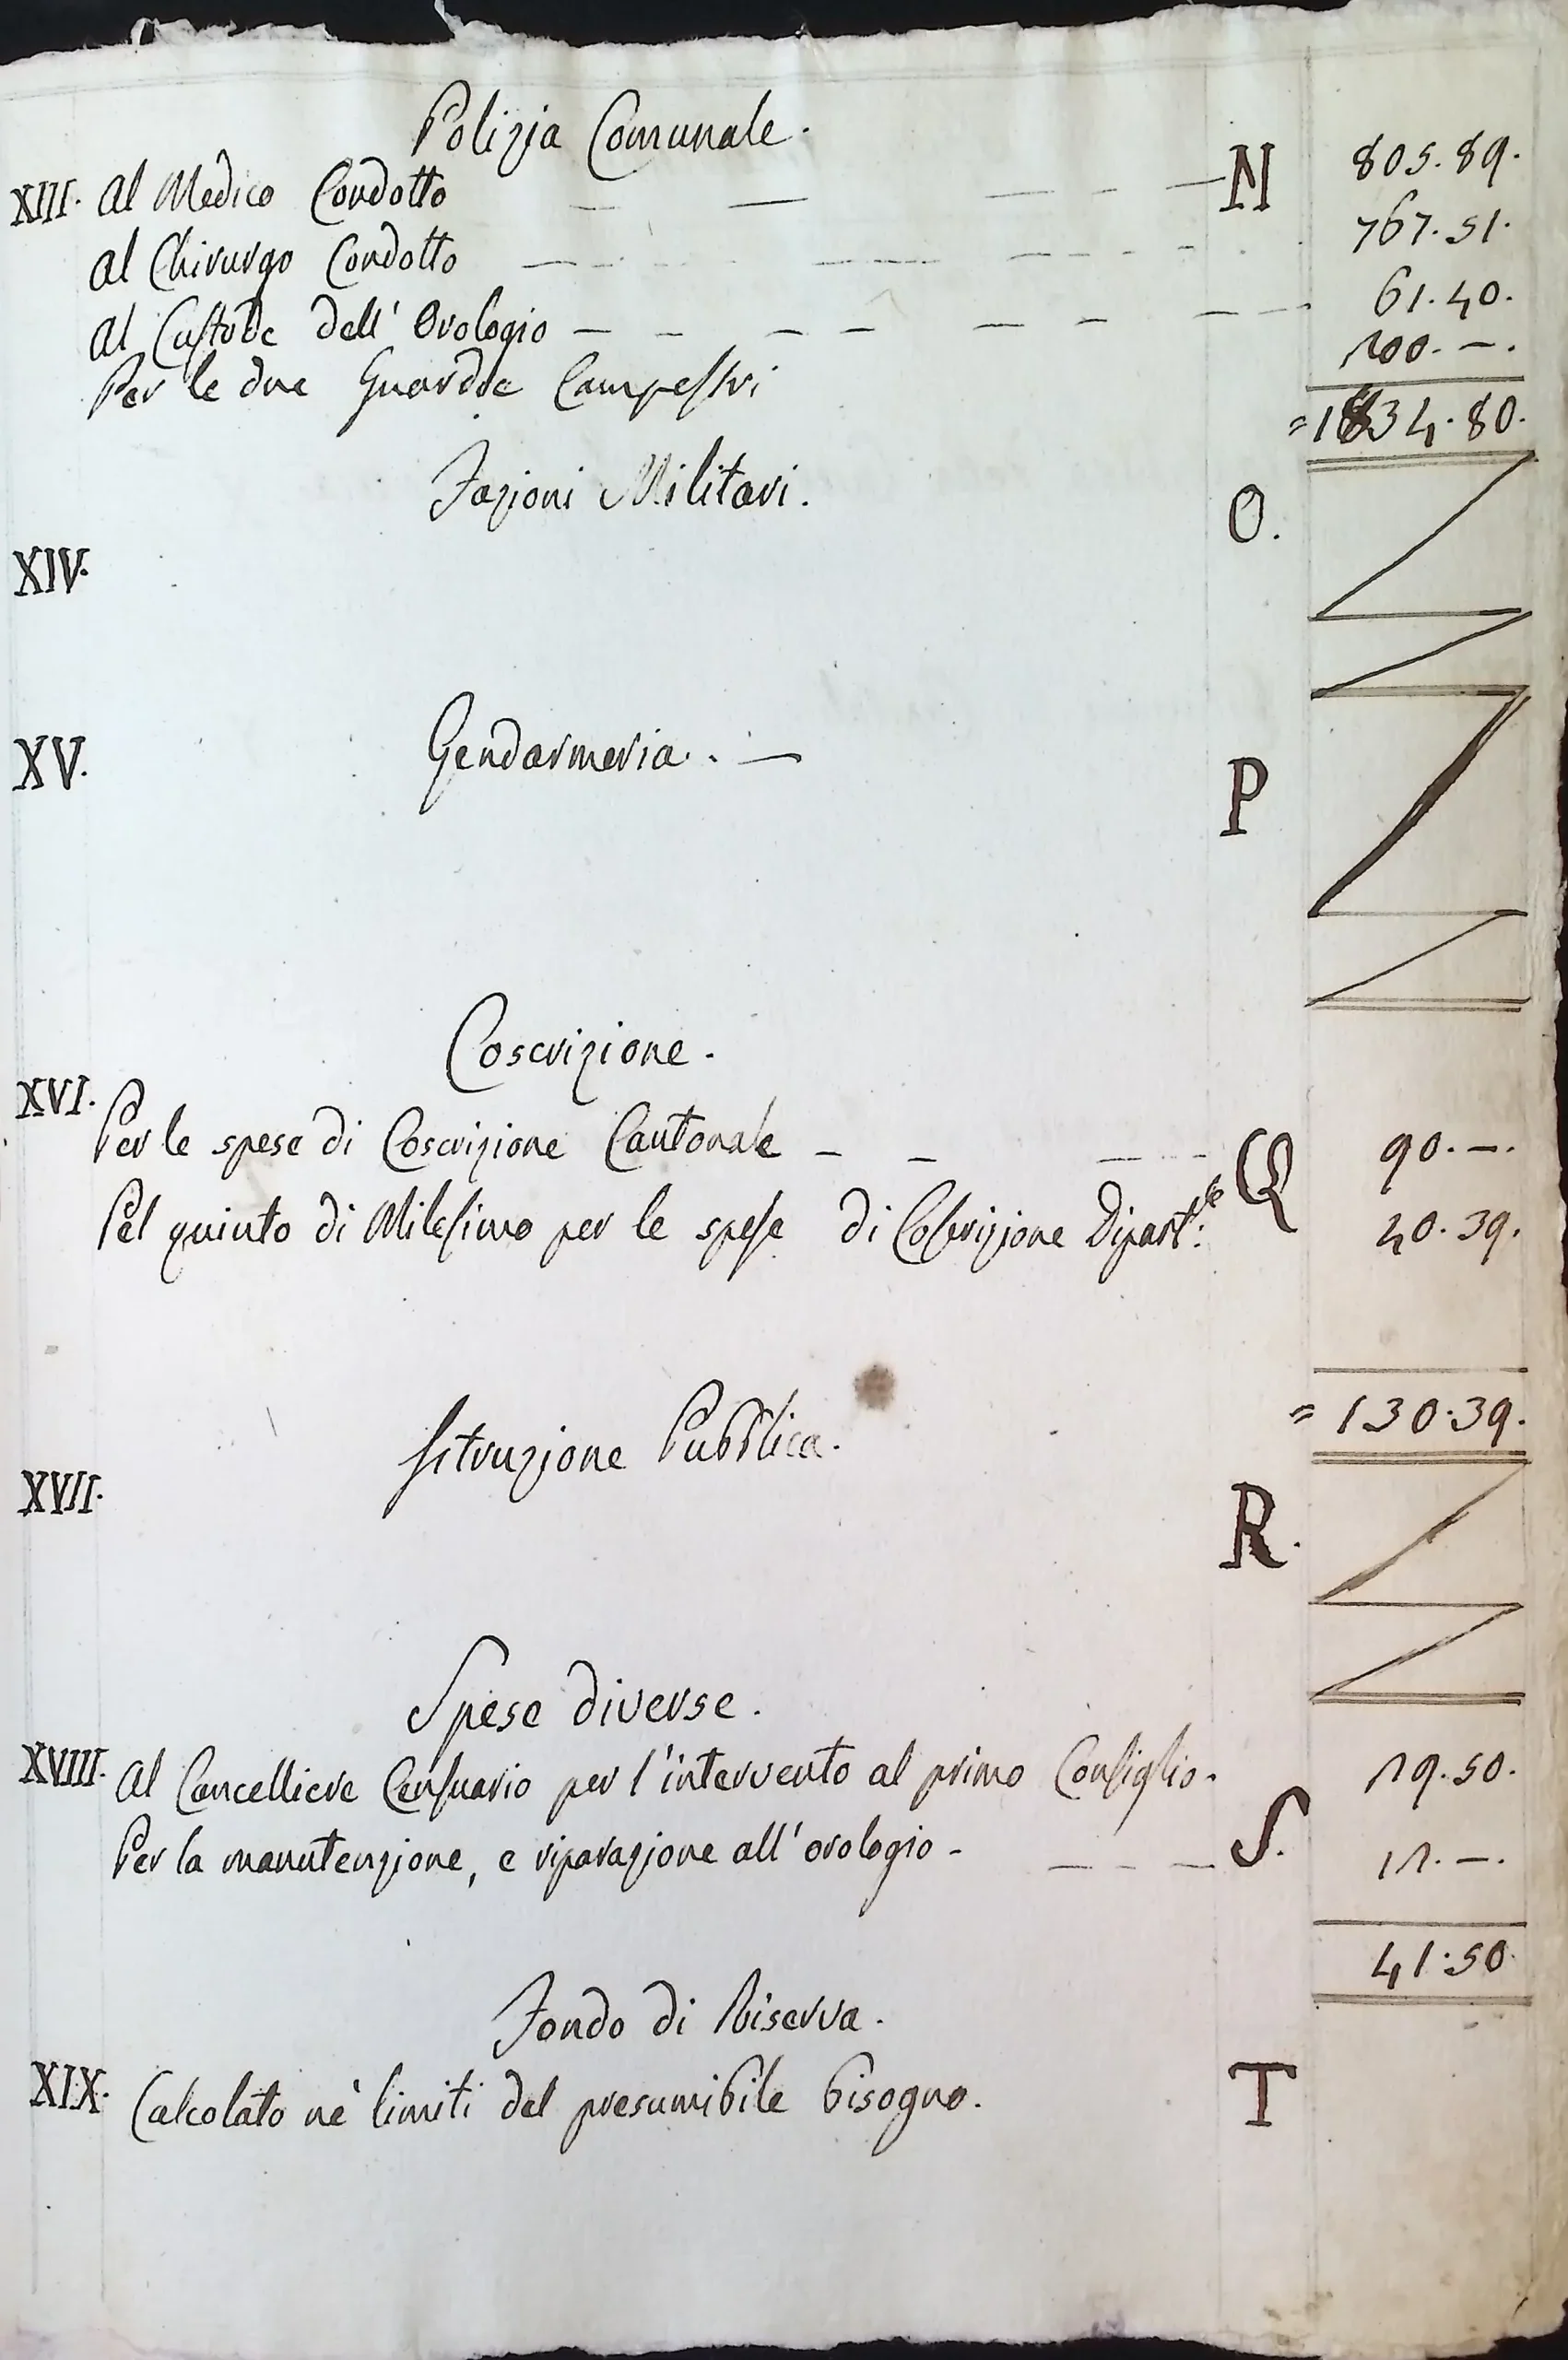 Polizia Comunale.
XIII. Al Medico Condotto — — — - — N 805.89.
Al Chirurgo Condotto — - — - — - 767.51.
Al Custode dell' Orologio — - — - — - — 61.40.
Per le due Guardie Campestri 200. — .
= 1834.80.
Fazioni Militari. O.
XIV.
XV. Gendarmeria. . — P
Coscrizione.
XVI. Per le spese di Coscrizione Cantonale — - — Q 90. — .
Pel quinto di Milesimo per le spese di Coscrizione Dipart.le 40.39.
= 130.39.
Istruzione Pubblica.
XVII. R.
Spese diverse.
XVIII. Al Cancelliere Censuario per l'intervento al primo Consiglio. 29.50.
Per la manutenzione, e riparazione all'orologio - — - — S. 12. — .
41.50
Fondo di Riserva.
XIX. Calcolato nè limiti del presumibile bisogno. T